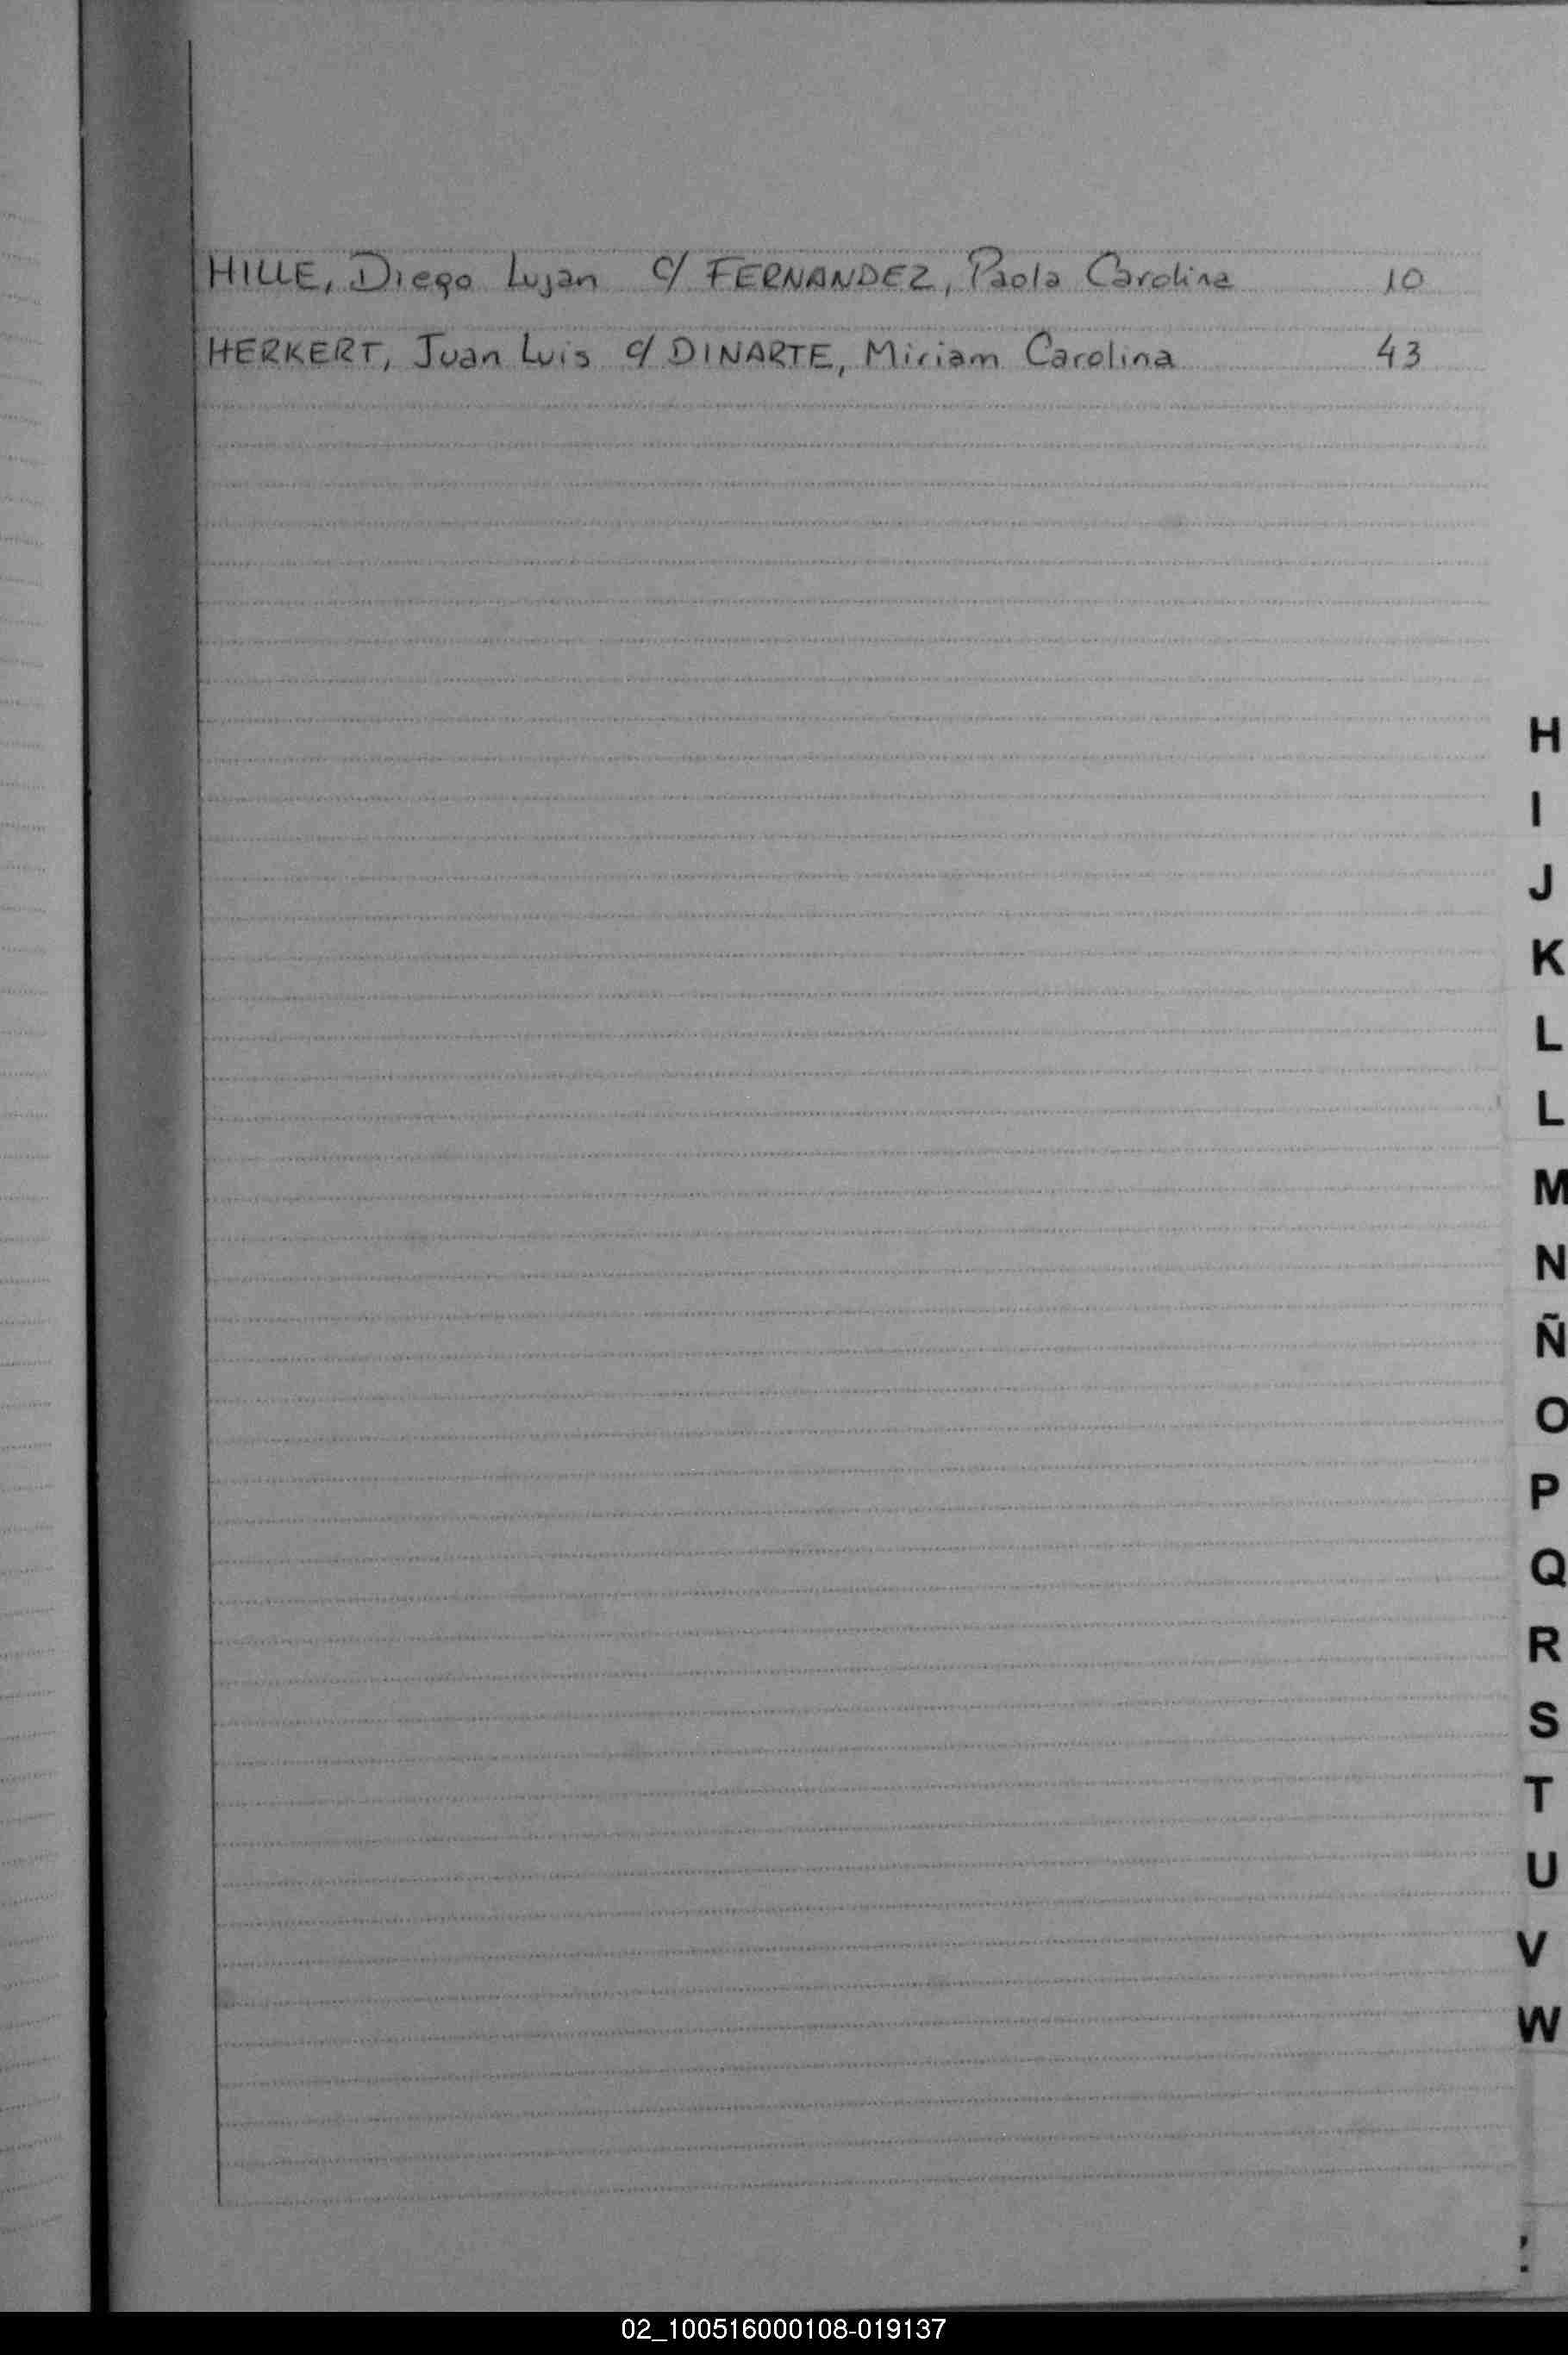 HILLE, Diego Lujan c/ FERNANDEZ, Paola Carolina 10
HERKERT, Juan Luis c/ DINARTE, Miriam Carolina 43
H
I
J
K
L
L
M
N
Ñ
O
P
Q
R
S
T
U
V
W
02_100516000108-019137